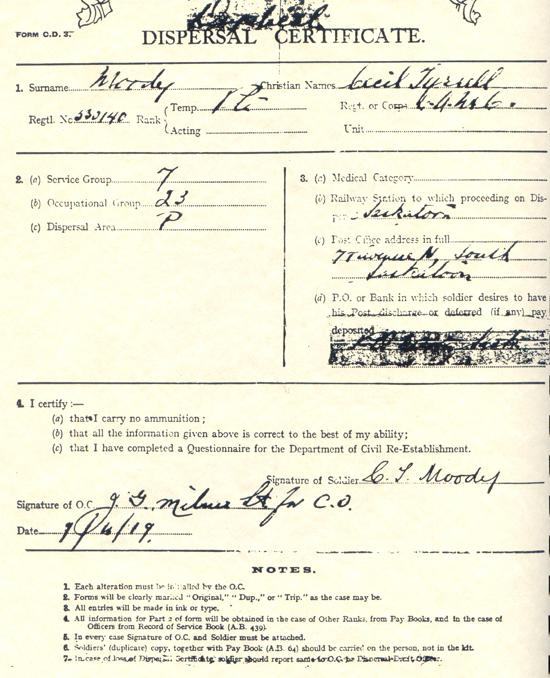 FORM C.D. 3.
DISPERSAL CERTIFICATE.
1. Surname Moody Christian Names Cecil Tyrell
Regtl. No 530140 Rank Temp. Pte Regt. or Corps
Acting Unit
2. (a) Service Group 7
(b) Occupational Group 23
(c) Dispersal Area P
3. (a) Medical Category
(b) Railway Station to which proceeding on Dis-
Saskatoon
(c) Post Office address in full
Avenue N, South
Saskatoon
(d) P.O. or Bank in which soldier desires to have
his Post discharge or deferred (if any) pay
deposited
4. I certify :—
(a) that I carry no ammunition ;
(b) that all the information given above is correct to the best of my ability;
(c) that I have completed a Questionnaire for the Department of Civil Re-Establishment.
Signature of Soldier C. T. Moody
Signature of O.C. J. G. Milner Lt for C.O.
Date /19
NOTES.
1. Each alteration must be initialled by the O.C.
2. Forms will be clearly marked "Original," "Dup.," or "Trip." as the case may be.
3. All entries will be made in ink or type.
4. All information for Part 2 of form will be obtained in the case of Other Ranks, from Pay Books, and in the case of
Officers from Record of Service Book (A.B. 439).
5. In every case Signature of O.C. and Soldier must be attached.
6. Soldiers' (duplicate) copy, together with Pay Book (A.B. 64) should be carried on the person, not in the kit.
7. In case of loss of Dispersal Certificate, soldier should report same to O.C. he Dispersal Draft Officer.